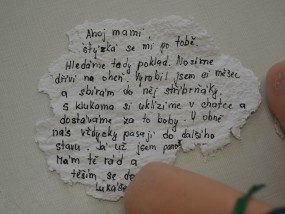 Ahoj mami,
stýzká se mi po tobě.
Hledáme tady poklad. Nosíme
dříví na oheň. Vyrobil jsem si měšec
a sbírám do něj stříbrňáky.
S klukama si uklízíme v chatce a
dostáváme za to body. V obně
nás vždycky posadí do dalšího
stavu. Já už jsem
Mám tě rád a
těším se
Lukáš